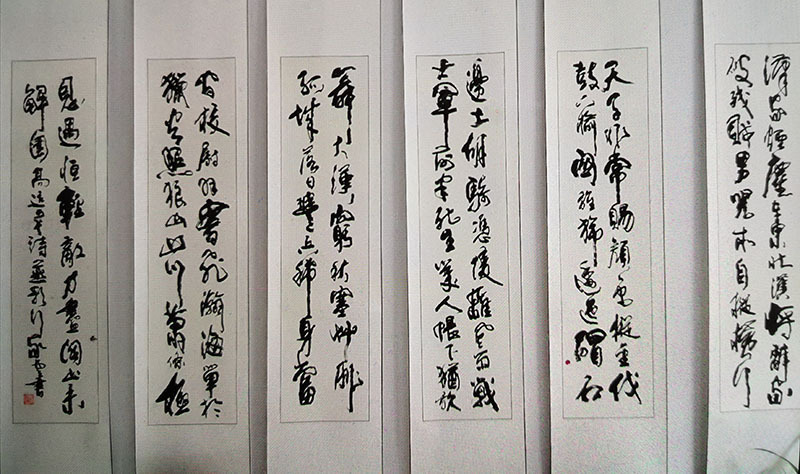 漢家煙塵在東北漢將辭家
破残賊男児本自縱橫行
天子非常賜顏色摐金伐
鼓下榆關旌旆逶迤碣石
邊土胡騎憑陵雜風雨戰
士軍前半死生美人帳下猶歌
舞大漠窮秋塞艸腓
孤城落日鬥兵稀身當
間校尉羽書飛瀚海單於
獵火照狼山山川蕭條極
恩遇恒輕敵力盡關山未
解圍高適詩燕歌行書